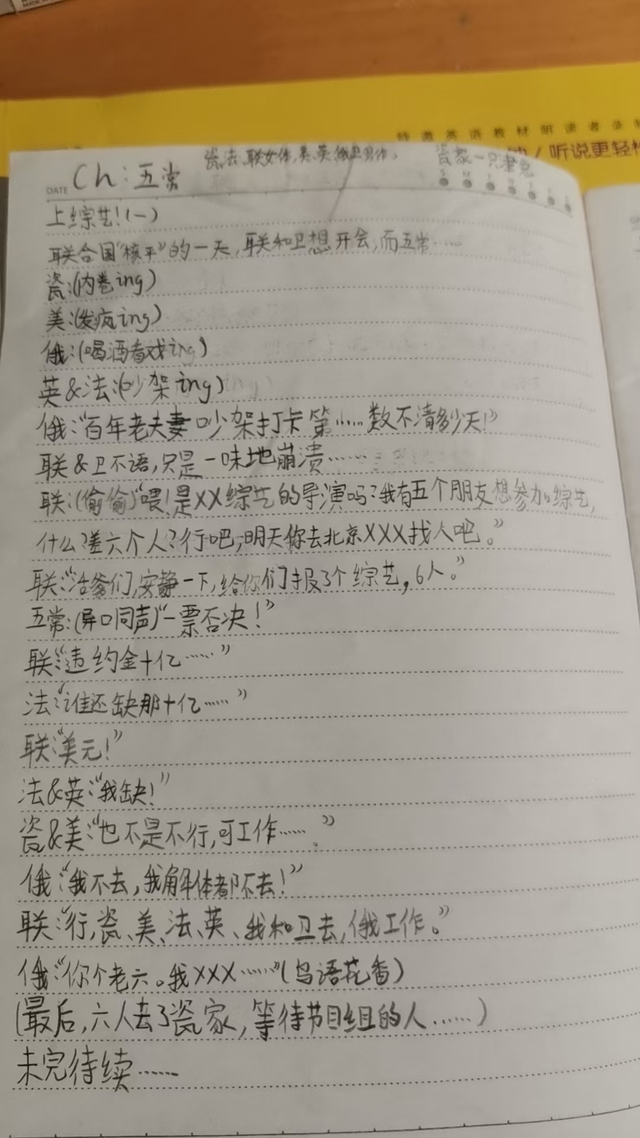 特邀英语教材朗读者录
听说更轻松
瓷、法、联女体,美、英、俄、卫男体。
瓷家一只聿兔
DATE Ch:五常
上综艺!(一)
联合国“核平”的一天,联和卫想开会,而五常……
瓷:(内卷ing)
美:(发疯ing)
俄:(喝酒看戏ing)
英&法:(吵架ing)
俄:“百年老夫妻吵架打卡第……数不清多少天!”
联&卫不语,只是一味地崩溃……
联:(偷偷)“喂!是XX综艺的导演吗?我有五个朋友想参加综艺,
什么?差六个人?行吧,明天你去北京XXX找人吧。”
联:“活爹们,安静一下,给你们报了个综艺,6人。”
五常:(异口同声)“一票否决!”
联:“违约金十亿……”
法:“谁还缺那十亿……”
联:“美元!”
法&英:“我缺!”
瓷&美:“也不是不行,可工作……”
俄:“我不去,我解体都不去!”
联:“行,瓷、美、法、英、我和卫去,俄工作。”
俄:“你个老六。我XXX……”(鸟语花香)
(最后,六人去了瓷家,等待节目组的人……)
未完待续……